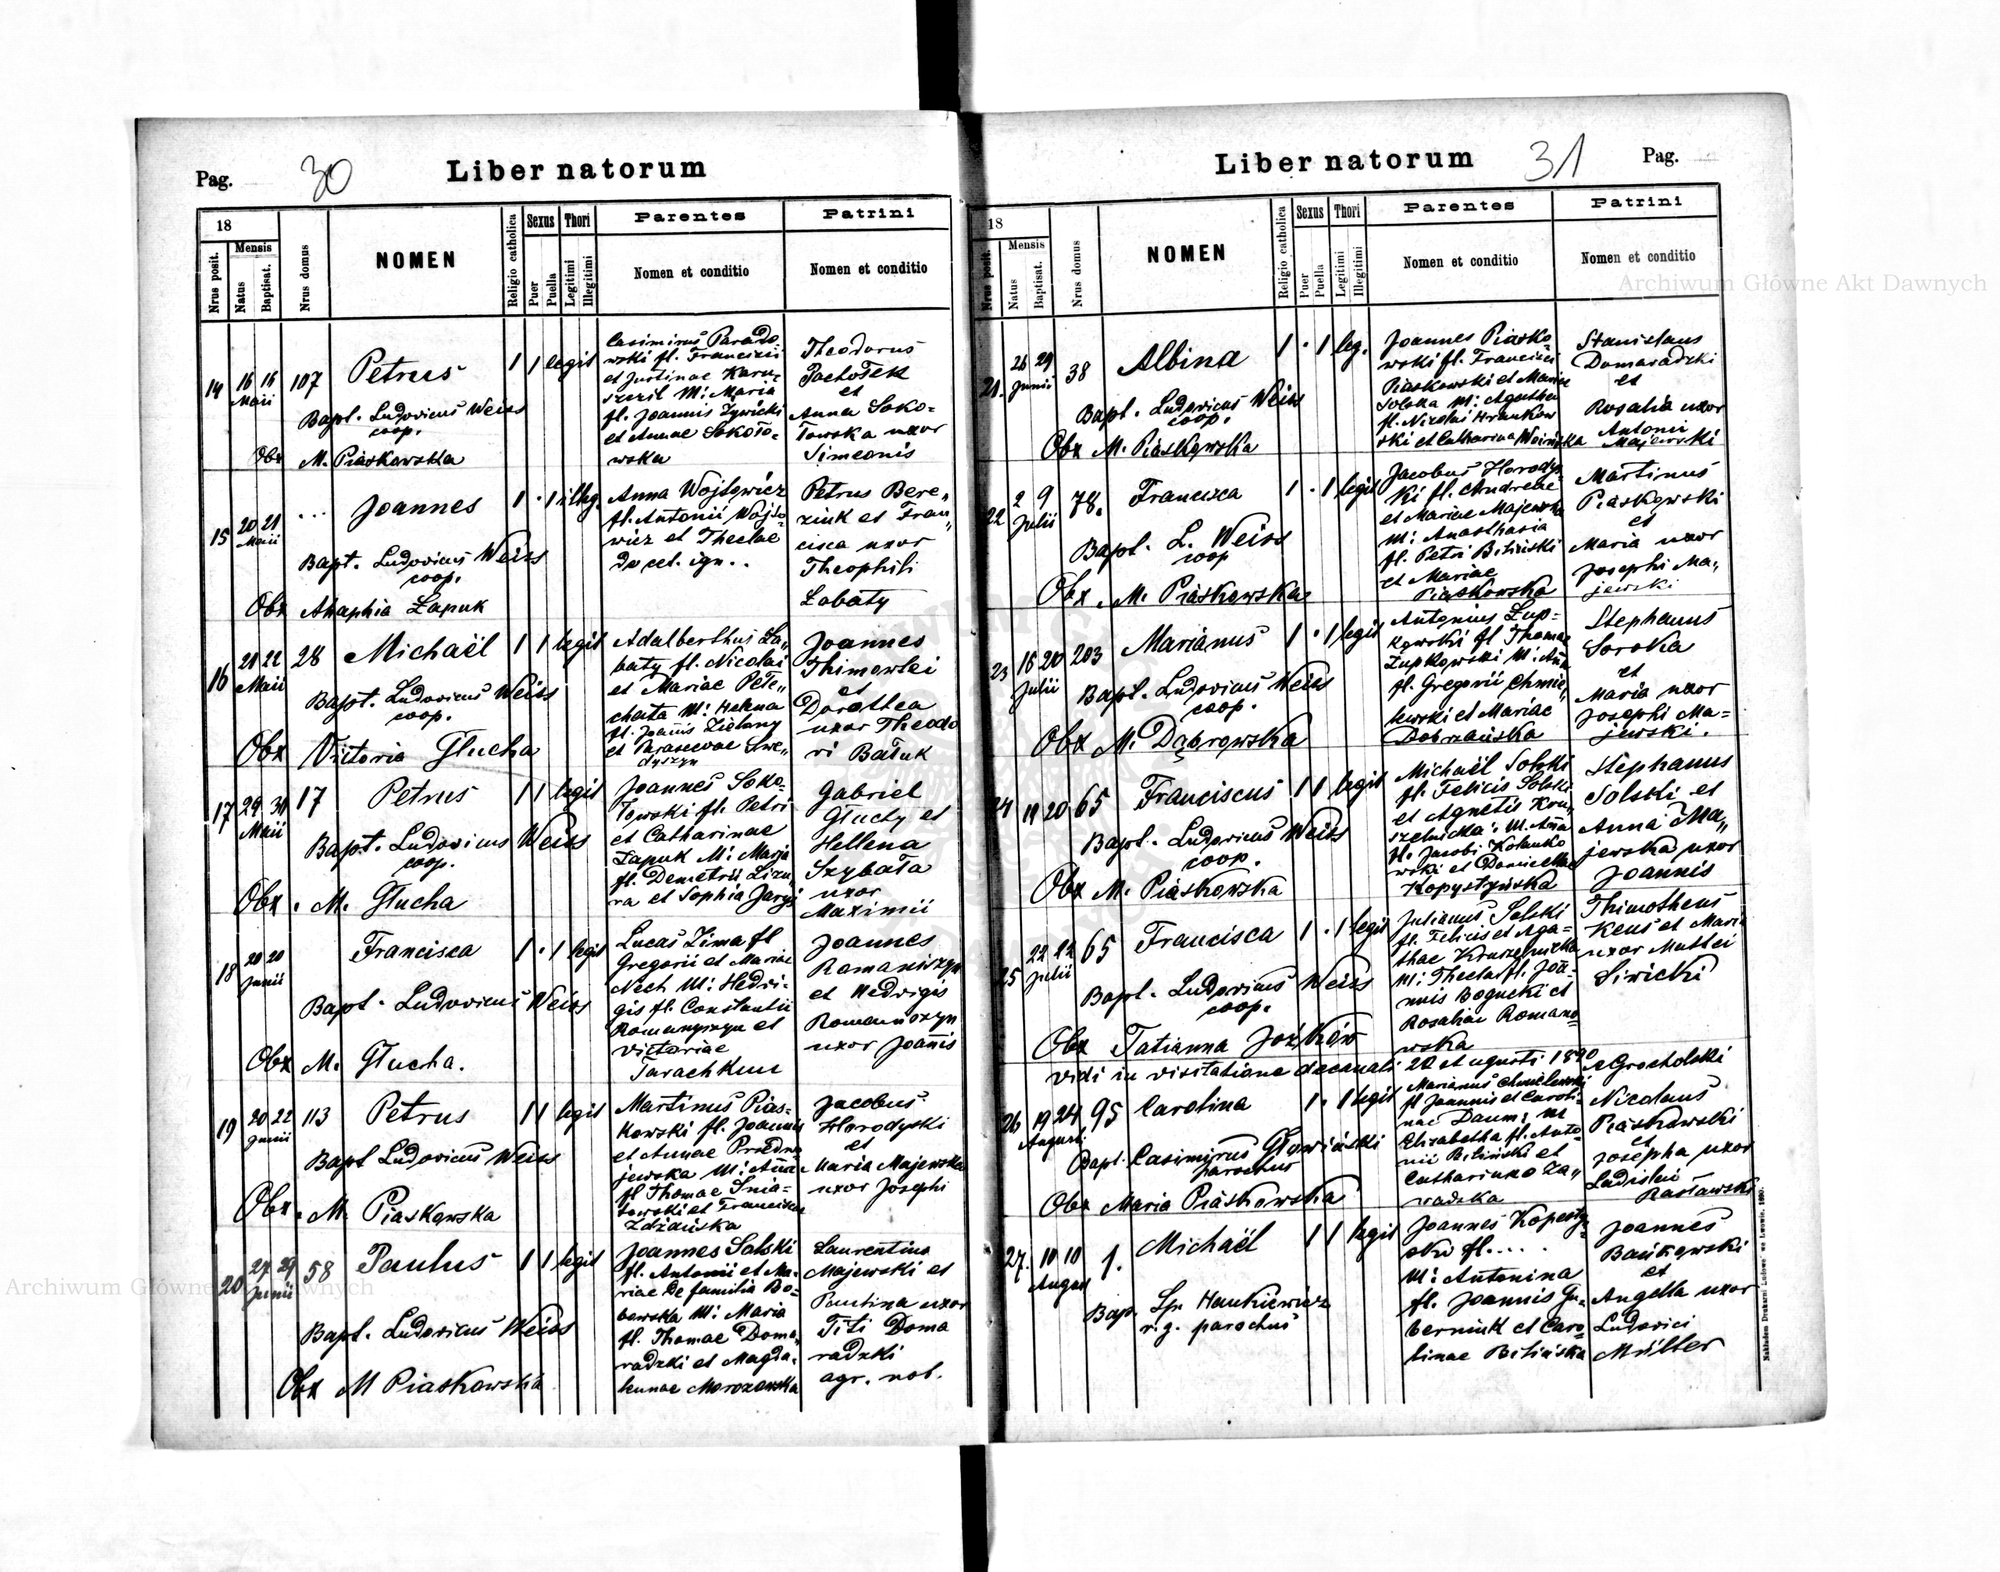 Pag. 30 Liber natorum
18
Mensis
Nrus posit.
Natus
Baptisat.
Nrus domus
NOMEN
Religio catholica
Sexus
Puer
Puella
Thori
Legitimi
Illegitimi
Parentes
Nomen et conditio
Patrini
Nomen et conditio
14 16 16 Maii 107 Petrus 1 1 legit
Bapt. Ludovicus Weiss
coop.
Obx M. Piaskowska
Casimirus Parado-
wski fl. Francisci
et Justinae Karu-
szczil M: Maria
fl. Joannis Zywicki
et Annae Sokoło-
wska
Theodorus
Pachołek
et
Anna Soko-
łowska uxor
Simeonis
15 20 21 Maii ... Joannes 1 . 1 illeg.
Bapt. Ludovicus Weiss
coop.
Obx Ahaphia Łapuk
Anna Wojtowicz
fl. Antonii Wojto-
wicz et Theclae
de cet. ign..
Petrus Bere„
ziuk et Fran„
cisca uxor
Theophili
Łabaty
16 21 22 Maii 28 Michaël 1 1 legit
Bapt. Ludovicus Weiss
coop.
Obx Victoria Głucha
Adalberthus Ła„
baty fl. Nicolai
et Mariae Pete„
chata M: Helena
fl. Joanis Zielony
et Parascevae Swe„
dyszyn
Joannes
Thimowski
et
Dorothea
uxor Theodo
ri Bałuk
17 29 31 Maii 17 Petrus 1 1 legit
Bapt. Ludovicus Weiss
coop.
Obx. M. Głucha
Joannes Soko-
łowski fl. Petri
et Catharinae
Łapuk M: Marja
fl. Demetrii Lizu„
ra et Sophia Jaryj
Gabriel
Głuchy et
Hellena
Szybata
uxor
Maximii
18 20 20 Junii Francisca 1 . 1 legit
Bapt. Ludovicus Weiss
Obx M. Głucha.
Lucas Zima fl
Gregorii et Mariae
Nech M: Hedvi-
gis fl. Constantii
Romanyszyn et
Victoriae
Tarachkun
Joannes
Romaniszyn
et Hedvigis
Romaniszyn
uxor Joanis
19 20 22 Junii 113 Petrus 1 1 legit
Bapt Ludovicus Weiss
Obx. M. Piaskowska
Martinus Pias-
kowski fl. Joannis
et Annae
jewska M: Anna
fl Thomae Snia-
towski et Francisca
Zdżańska
Jacobus
Horodyski
et
Maria Majewska
uxor Josephi
20 27 29 Junii 58 Paulus 1 1 legit
Bapt. Ludovicus Weiss
Obx M Piaskowska
Joannes Solski
fl. Antonii et Ma-
riae de familia Bo-
bowska M: Maria
fl. Thomae Doma„
radzki et Magda-
lenae Morozowska
Laurentius
Majewski et
Paulina uxor
Titi Doma
radzki
agr. nob.
Liber natorum 31 Pag.
18
Mensis
Nrus posit.
Natus
Baptisat.
Nrus domus
NOMEN
Religio catholica
Sexus
Puer
Puella
Thori
Legitimi
Illegitimi
Parentes
Nomen et conditio
Patrini
Nomen et conditio
21. 26 29 Junii 38 Albina 1 . 1 leg.
Bapt. Ludovicus Weiss
coop.
Obx M. Piaskowska
Joannes Piasko
wski fl. Francisci
Piaskowski et Mariae
Solska M: Agatha
fl. Nicolai Hrankow
ski et Catharina
Stanislaus
Domaradzki
et
Rosalia uxor
Antonii
Majewski
22 2 9 Julii 78. Francisca 1 . 1 legit
Bapt. L. Weiss
coop
Obx. M. Piaskowska
Jacobus Horodys
ki fl. Andreae
et Mariae Majewska
M: Anasthasia
fl. Petri Biliński
et Mariae
Piaskowska
Martinus
Piaskowski
et
Maria uxor
Josephi Ma„
jewski
23 16 20 Julii 203 Marianus 1 . 1 legit
Bapt. Ludovicus Weiss
coop.
Obx M. Dąbrowska
Antonius Łup-
kowski fl Thomae
Łupkowski M: Aña
fl. Gregorii Chmie„
lewski et Mariae
Dobrzańska
Stephanus
Soroka
et
Maria uxor
Josephi Ma-
jewski.
24 19 20 65 Franciscus 1 1 legit
Bapt. Ludovicus Weiss
coop.
Obx M. Piaskowska
Michaël Solski
fl. Felicis Solski
et Agnetis Kru„
szelnicka: M. Aña
fl. Jacobi Kolanko
wski et Danicellae
Kopystyńska
Stephanus
Solski et
Anna Ma„
jewska uxor
Joannis
25 22 22 Julii 65 Francisca 1 . 1 legit
Bapt. Ludovicus Weiss
coop.
Obx Tatianna Jożków
Julianus Solski
fl. Felicis et Aga-
thae Kruszelnicka
M: Thecla fl. Joa-
nnis Bogucki et
Rosaliae Romano-
wska
Thimotheus
Keuś et Maria
uxor Mathei
Siwicki
Vidi in visitatione decanali 20 Augusti 1890 Grocholski
26 19 24 Augusti 95 Carolina 1 . 1 legit
Bapt. Casimirus Głowiński
parochus
Obx Maria Piaskowska
Marianus Chmielewski
fl Joannis et Caroli-
nae Daum; M
Elizabetha fl. Anto-
nii Biliński et
Catharinae Za„
wadzka
Nicolaus
Piaskowski
et
Josepha uxor
Ladislai
Rasławski
27. 10 10 August 1. Michaël 1 1 legit
Bap. Sp. Hankiewicz
r. g. parochus
Joannes Kopesty-
ński fl. ....
M: Antonina
fl. Joannis Gu„
berniuk et Caro-
linae Bilińska
Joannes
Bańkowski
et
Angella uxor
Ludovici
Müller
Nakładem Drukarni Ludowej we Lwowie. 1890.
Archiwum Główne Akt Dawnych
Archiwum Główne Akt Dawnych